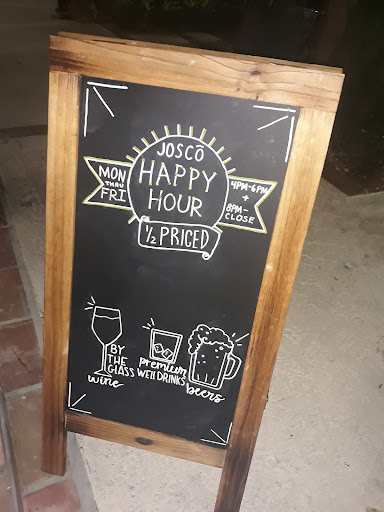 JOSCŌ
HAPPY
HOUR
1/2 PRICED
MON
THRU
FRI
4PM-6PM
+
8PM-
CLOSE
BY
THE
GLASS
wine
premium
WELL DRINKS
beers